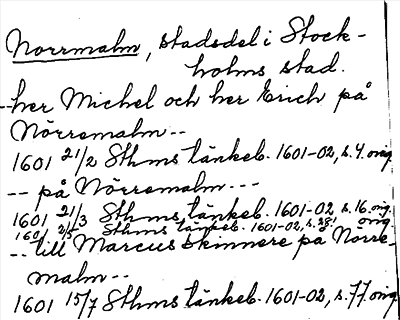 Norrmalm, stadsdel i Stock-
holms stad.
--her Michel och her Erich på
Nörremalm--
1601 21/2 Sthms tänkeb. 1601-02, s.4. orig.
-- på Nörremalm ---
1601 21/3 Sthms tänkeb. 1601-02 s.16. orig.
1601 2/5 Sthms tänkeb. 1601-02, s.28. orig.
-- till Marcus skinnere på Nörre-
malm--
1601 15/7 Sthms tänkeb. 1601-02, s.77. orig